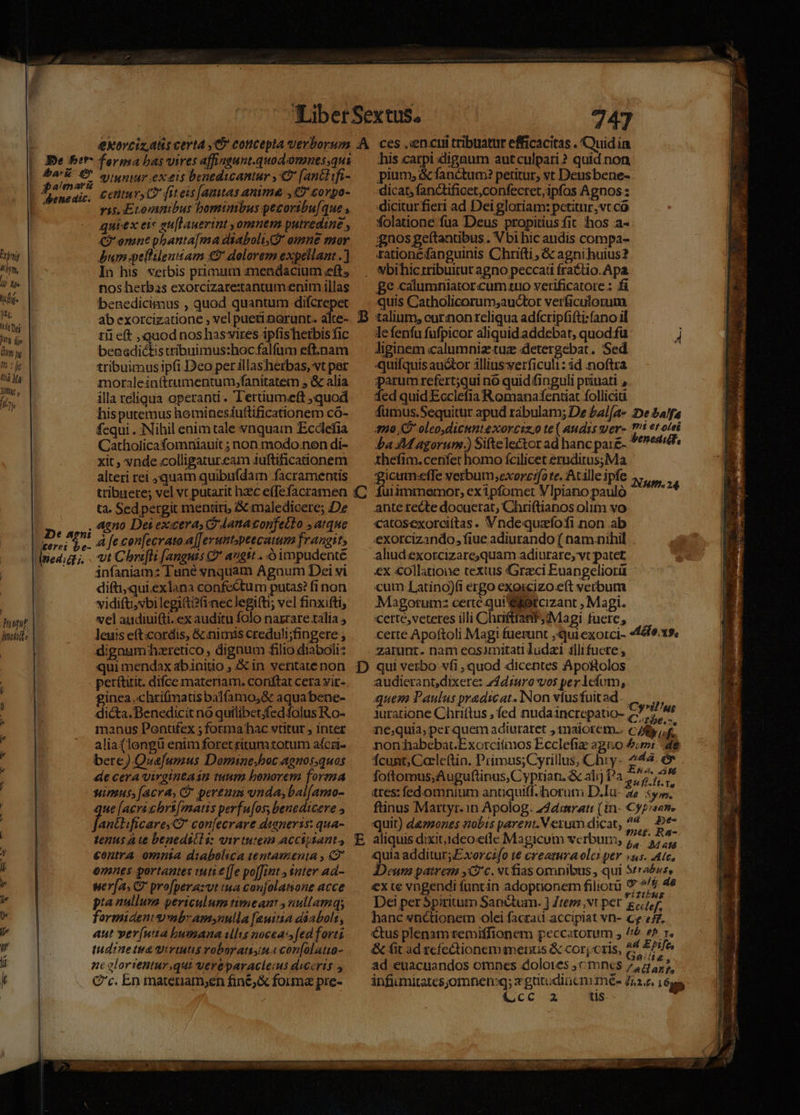 Liber Sextus. 747
exorcizatis certa, & concepta verborum
forma has vires affingunt. quod omnes, qui
vtuntur ex eis benedicantur, & sanctifi-
centur, & fit eis sanitas animæ, & corpo-
ris. Et omnibus hominibus pecoribusque,
qui ex eis gustauerint, omnem putredinē,
& omne phantasma diaboli, & omne mor
bum, pestilentiam & dolorem expellant.]
In his verbis primum mendacium est,
nos herbas exorcizare: tantum enim illas
benedicimus, quod quantum discrepet
ab exorcizatione, vel pueri norunt. alte-
rū est, quod nos has vires ipsis herbis sic
benedictis tribuimus: hoc falsum est. nam
tribuimus ipsi Deo per illas herbas, vt per
morale instrumentum, sanitatem, & alia
illa reliqua operanti. Tertium est, quod
his putemus homines iustificationem cō-
sequi. Nihil enim tale vnquam Ecclesia
Catholica somniauit; non modo non di-
xit, vnde colligatur eam iustificationem
alteri rei, quam quibusdam sacramentis
tribuere; vel vt putarit hæc esse sacramen
ta. Sed pergit mentiri, & maledicere; De
agno Dei ex cera, & Iana confecto, atque
à se consecrato asserunt, peccatum frangit,
vt Christi sanguis & angit. ô impudentē
infaniam: Tunè vnquam Agnum Dei vi
disti, qui ex lana confectum putas? si non
vidisti, vbi legisti? si nec legisti; vel finxisti,
vel audiuisti. ex auditu solo narrare talia,
leuis est cordis, & nimis creduli; fingere,
dignum hæretico, dignum filio diaboli:
qui mendax ab initio, & in veritate non
perstitit. disce materiam. constat cera vir-
ginea, chrismatis balsamo, & aqua bene-
dicta. Benedicit nō quilibet, sed solus Ro-
manus Pontifex; forma hac vtitur, inter
alia (longū enim foret ritum totum ascri-
bere) Quæsumus Domine, hoc agnos, quos
de cera virginea in tuum honorem forma
uimus, sacra, & perenni vnda, balsamo-
que sacri chrismatis perfusos, benedicere,
sanctificare, & consecrare digneris: qua-
tenus à te benedicti: virtutem accipiant,
contra omnia diabolica tentamenta, &
omnes portantes tuti esse possint, inter ad-
uersa, & prospera: vt tua consolatione acce
pta nullum periculum timeant, nullamq;
formident vmbram, nulla sæuitia diaboli,
aut versutia humana illis noceat, sed forti
tudine tua virtutis roborati, in consolatio-
ne glorientur, qui verè paracletus diceris,
&c. En materiam, en finē, & formæ pre-
De her-
De agni
cerei be-
nedictæ.
A ces, en cui tribuatur efficacitas. Quid in
his carpi dignum aut culpari? quid non
pium, & sanctum? petitur, vt Deus bene-
dicat, sanctificet, consecret, ipsos Agnos:
dicitur fieri ad Dei gloriam: petitur, vt cō
solatione sua Deus propitius sit hos a-
gnos gestantibus. Vbi hic audis compa-
rationē sanguinis Christi, & agni huius?
vbi hic tribuitur agno peccati fractio. Apa
ge calumniator cum tuo verificatore: si
quis Catholicorum, auctor versiculorum
B talium, cur non reliqua adscripsisti? sano il
le sensu suspicor aliquid addebat, quod fu
liginem calumniæ tuæ detergebat. Sed
quisquis auctor illius versiculi: id nostra
parum refert; qui nō quid singuli priuati,
sed quid Ecclesia Romana sentiat solliciti
sumus. Sequitur apud rabulam; De balsa-
mo, & oleo, dicunt exorcizo te (audis ver-
ba Magorum.) Siste lector ad hanc parē-
thesim. censet homo scilicet eruditus; Ma
gicum esse verbum, exorciso te. At ille ipse
C sui immemor, ex ipsomet Vlpiano pauló
ante recte docuerat, Christianos olim vo
catos exorcistas. Vnde quæso si non ab
exorcizando, siue adiurando (nam nihil
aliud exorcizare, quam adiurare, vt patet
ex collatione textus Græci Euangeliorū
cum Latino) si ergo exorcizo est verbum
Magorum: certè qui exorcizant, Magi.
certe, veteres illi Christiani, Magi fuere,
certe Apostoli Magi fuerunt, qui exorci-
zarunt. nam eos imitati Iudæi illi fuere,
D qui verbo vsi, quod dicentes Apostolos
audierant, dixere: Adiuro vos per Iesum,
quem Paulus prædicat. Non vius fuit ad
iuratione Christus, sed nuda increpatio-
ne, quia, per quem adiuraret, maiorem,
non habebat. Exorcismos Ecclesiæ agno
scunt, Cœlestin. Primus; Cyrillus, Chry-
sostomus, Augustinus, Cyprian. & alij Pa
tres: sed omnium antiquiss. horum D. Iu-
stinus Martyr. in Apolog. Adiurati (in-
quit) dæmones nobis parent. Verum dicat,
E aliquis dixit, ideo esse Magicum verbum,
quia additur; Exorciso te creatura olei per
Deum patrem, &c. vt fias omnibus, qui
ex te vngendi sunt in adoptionem filiorū
Dei per Spiritum Sanctum.] Item, vt per
hanc vnctionem olei sacrati accipiat vn-
ctus plenam remissionem peccatorum,
& fit ad refectionem mentis & corporis,
ad euacuandos omnes dolores, omnes
infirmitates, omnemq; ægritudinem mē-
De balsa
mi et olei
benedict.
Num. 24
Acto. 19.
Cccc 2 tis